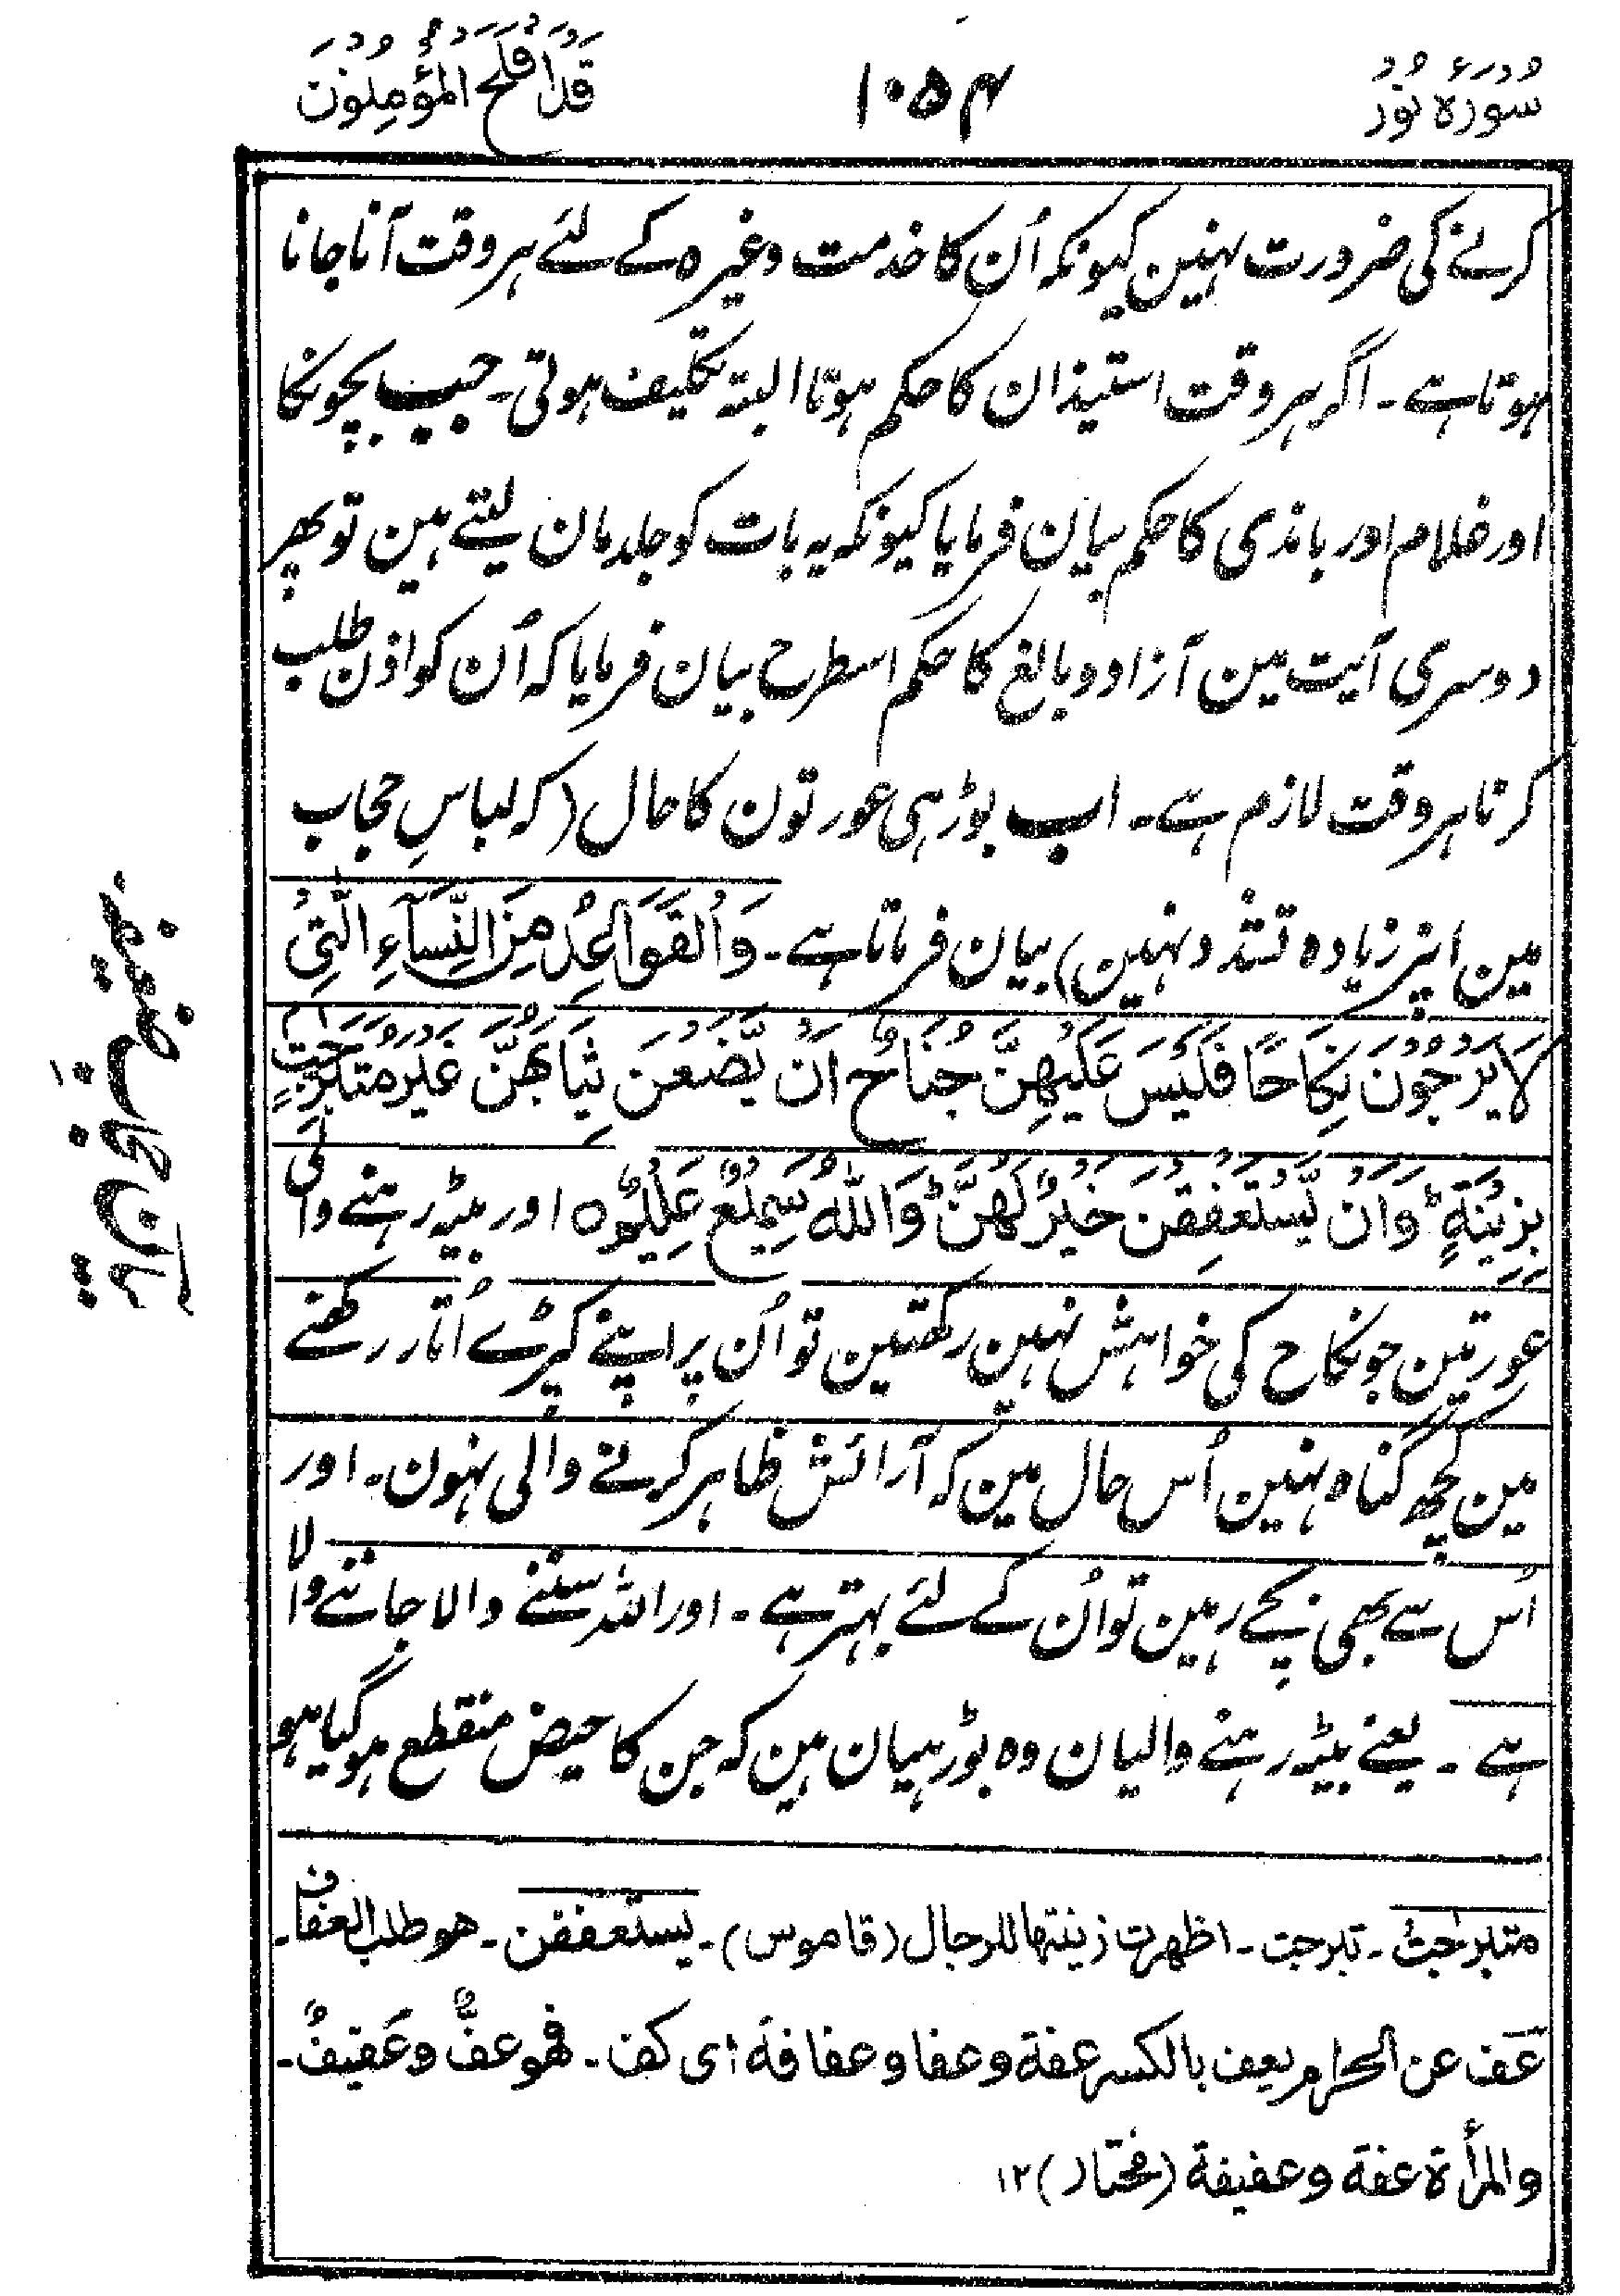 سُوْرَۂ نُوْر ۱۰۵۴ قَدْ اَفْلَحَ الْمُؤْمِنُوْنَ
کرنے کی ضرورت نہین کیونکہ اُن کا خدمت وغیرہ کے لئے ہر وقت آنا جانا
ہوتا ہے۔ اگر ہر وقت استیذان کا حکم ہوتا البتہ تکلیف ہوتی۔ جب بچونکا
اور غلام اور باندی کا حکم بیان فرمایا کیونکہ یہ بات کو جلد مان لیتے ہین تو پھر
دوسری آیت مین آزاد و بالغ کا حکم اسطرح بیان فرمایا کہ اُن کو اذن طلب
کرنا ہر وقت لازم ہے۔ اب بوڑہی عورتون کا حال (کہ لباسِ حجاب
مین انپر زیادہ تشدد نہین) بیان فرماتا ہے۔ وَالْقَوَاعِدُ مِنَ النِّسَآءِ الّٰتِیْ
لَا یَرْجُوْنَ نِکَاحًا فَلَیْسَ عَلَیْهِنَّ جُنَاحٌ اَنْ یَّضَعْنَ ثِیَابَهُنَّ غَیْرَ مُتَبَرِّجٰتٍۭ
بِزِیْنَةٍ ؕ وَاَنْ یَّسْتَعْفِفْنَ خَیْرٌ لَّهُنَّ ؕ وَاللّٰهُ سَمِیْعٌ عَلِیْمٌ ہ اور بیٹہ رہنے والی
عورتین جو نکاح کی خواہش نہین رکھتین تو اُن پر اپنے کپڑے اُتار رکھنے
مین کچھ گناہ نہین اُس حال مین کہ آرائش ظاہر کرنے والی نہون۔ اور
اُس سے بھی بچے رہین تو اُن کے لئے بہتر ہے۔ اور اللہ سننے والا جاننے والا
ہے۔ یعنے بیٹہ رہنے والیان وہ بوڑہیان ہین کہ جن کا حیض منقطع ہو گیا ہو
متبرجٰت۔ تبرجت۔ اظهرت زینتها للرجال (قاموس)۔ یستعففن۔ هو طلب العفاف۔
عَفّ عن الحرام یعف بالکسر عفة وعفا وعفافة ای کف۔ فهو عفٌّ وعَفِیفٌ۔
والمرأة عفة وعفیفة (مختار) ۱۲